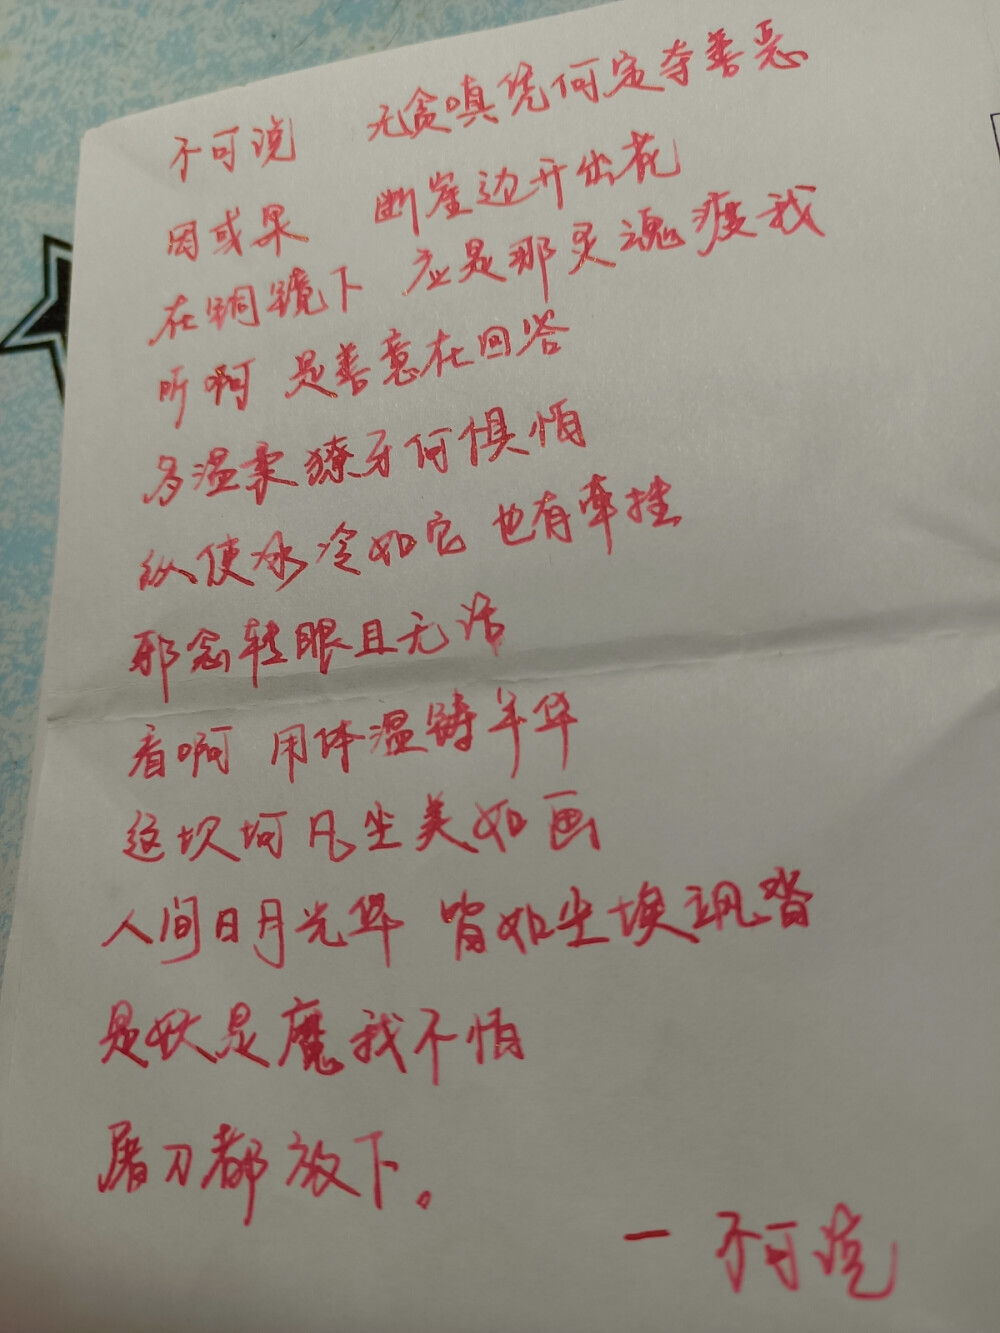 不可说 无贪嗔凭何定夺善恶
因或果 断崖边开出花
在铜镜下 应是那灵魂瘦我
听啊 是善意在回答
多温柔獠牙何惧怕
纵使冰冷如它 也有牵挂
邪念转眼且无话
看啊 用体温铸年华
这坎坷凡尘美如画
人间日月光华 皆如尘埃飒沓
是妖是魔我不怕
屠刀都放下。
一 不可说